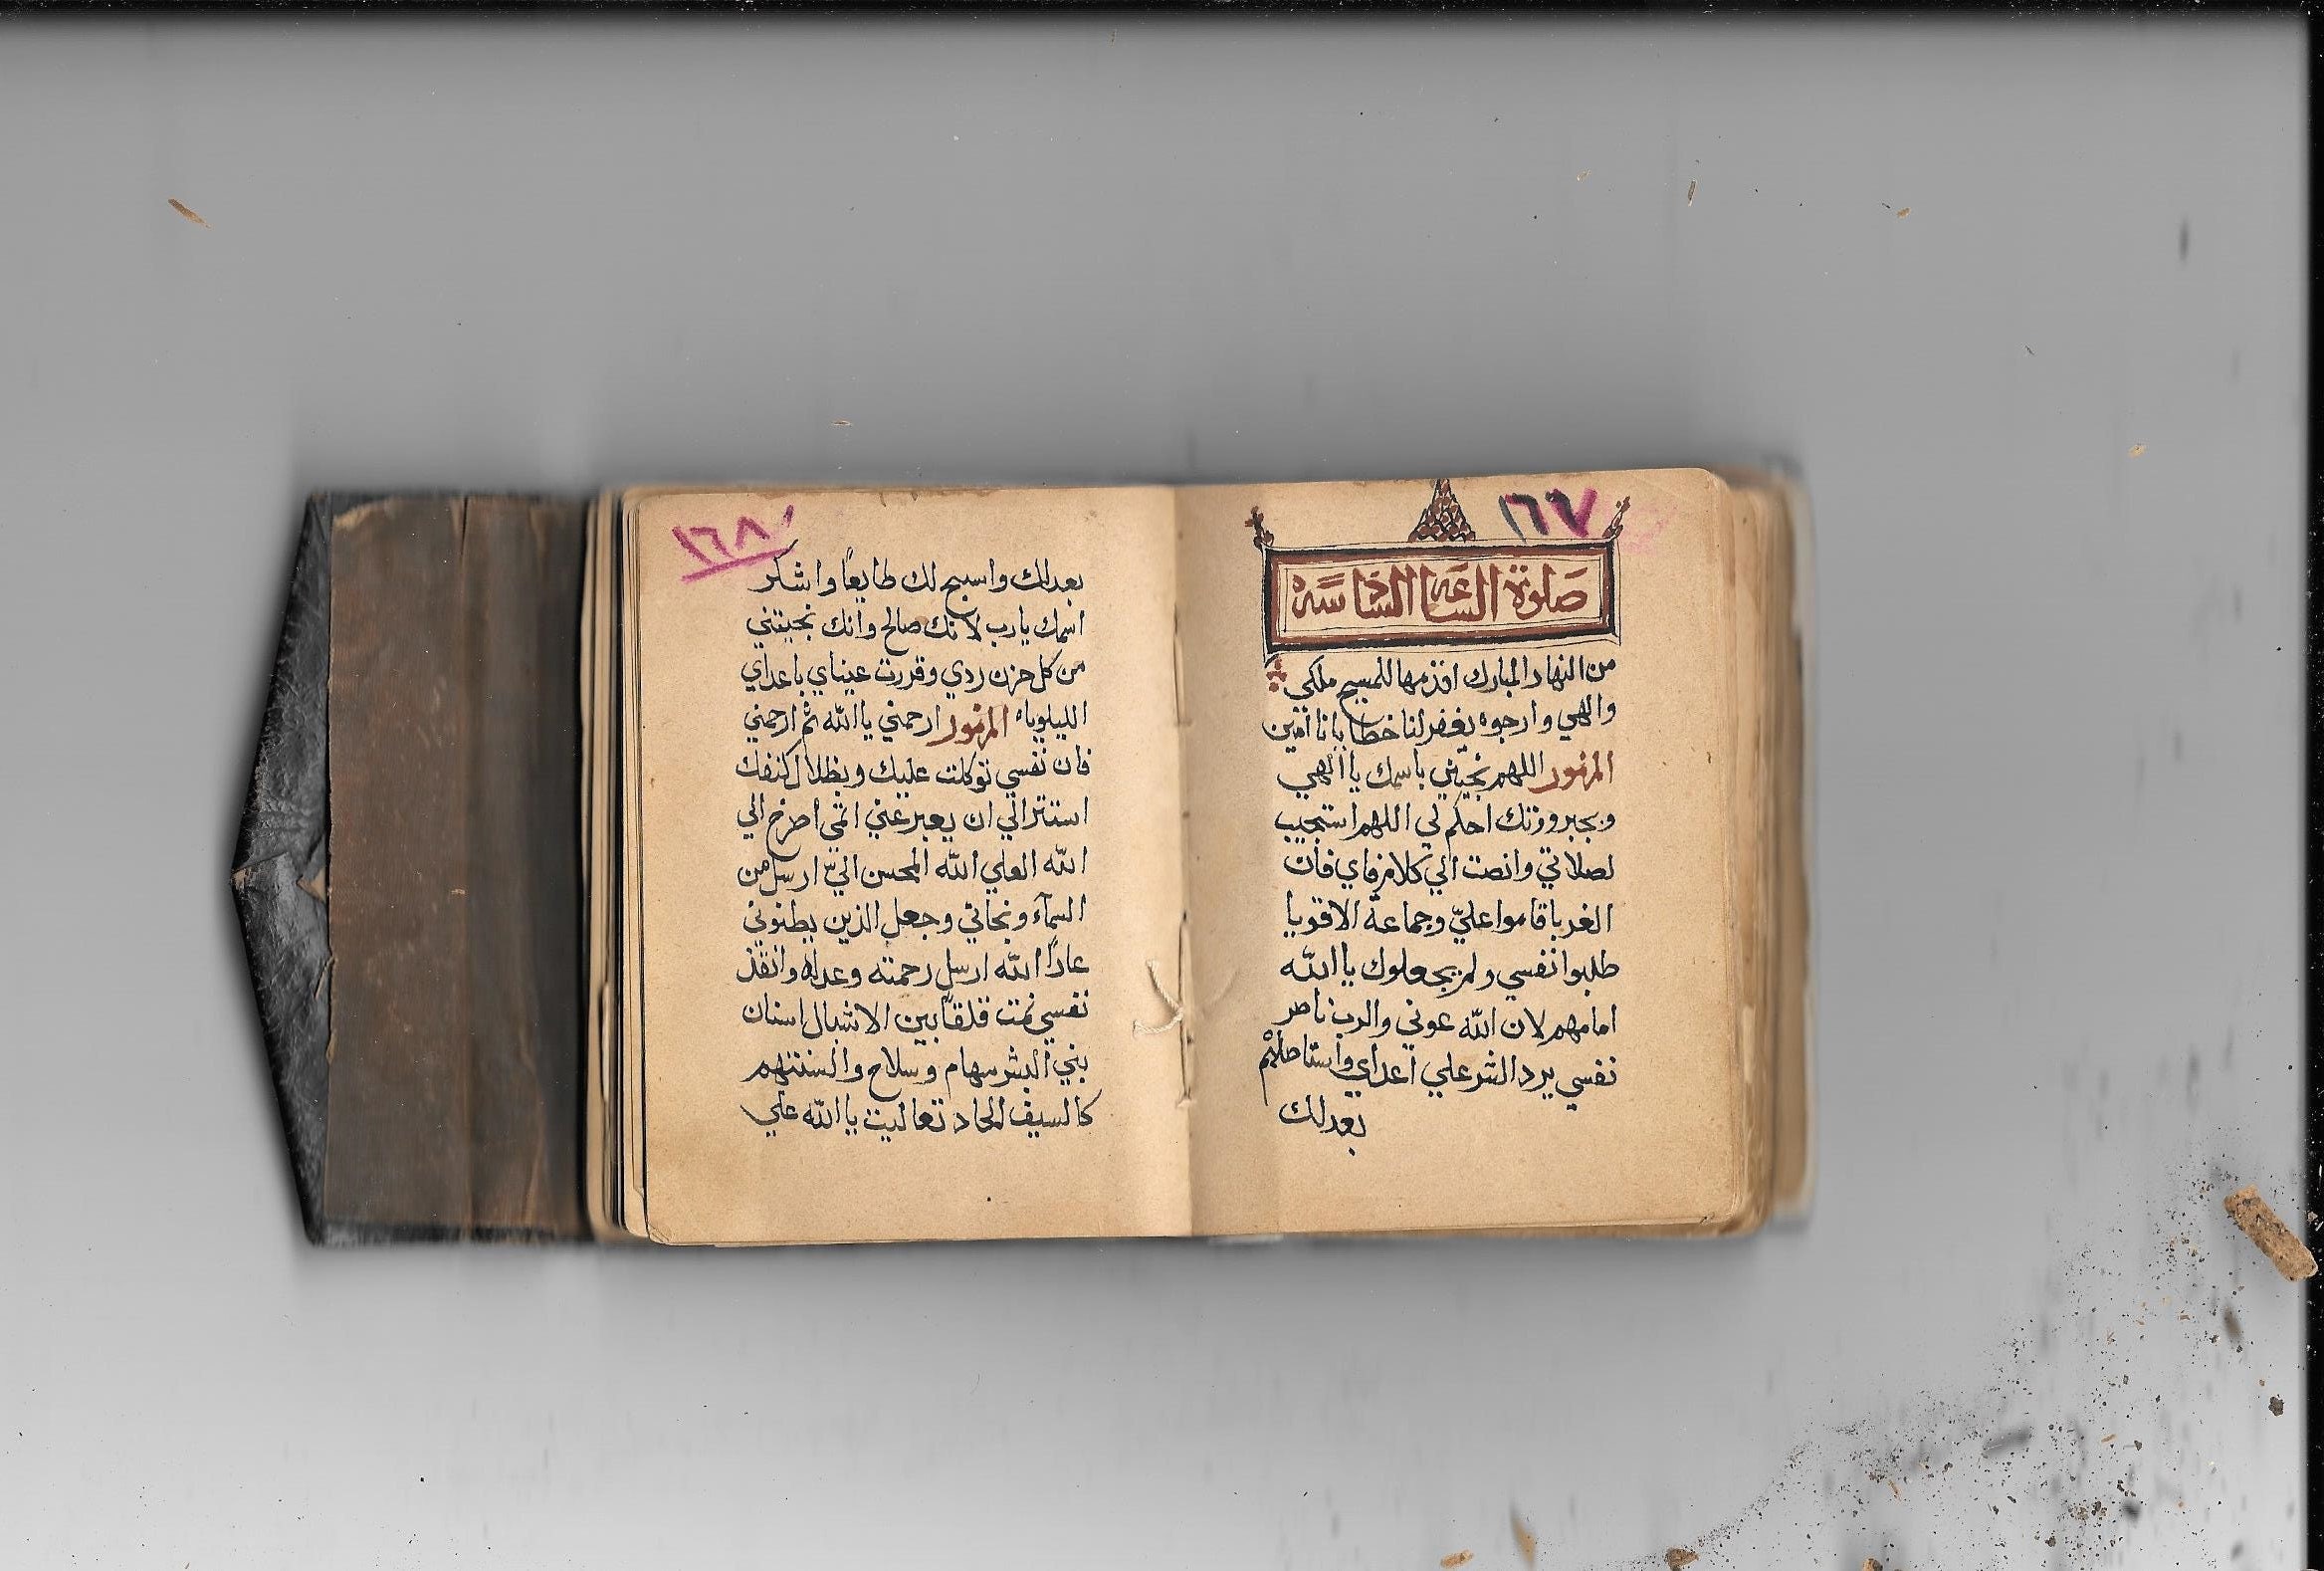 ١٦٧
صلوة الساعه السادسه
من النهار المبارك اقدمها للمسيح ملكي
والهي وارجوه يغفر لنا خطايانا امين
المزمور اللهم نجيني باسمك يا الهي
وبجبروتك احكم لي اللهم استجيب
لصلاتي وانصت الي كلام فاي فان
الغربا قاموا عليّ وجماعة الاقويا
طلبوا نفسي ولم يجعلوك يا الله
امامهم لان الله عوني والرب ناصر
نفسي يرد الشر علي اعداي واستاصلهم
بعدلك
١٦٨
بعدلك واسبح لك طايعاً واشكر
اسمك يارب لانك صالح وانك نجيتني
من كل حزن ردي وقررت عيناي باعداي
الليلوياه المزمور ارحمني يا الله ثم ارحمني
فان نفسي توكلت عليك وبظلال كنفك
استتر الي ان يعبر عني اثمي اصرخ الي
الله العلي الله المحسن اليّ ارسل من
السمآء ونجاني وجعل الذين يطئوني
عاراً الله ارسل رحمته وعدله وانقذ
نفسي نمت قلقاً بين الاشبال اسنان
بني البشر سهام وسلاح والسنتهم
كالسيف الحاد تعاليت يا الله علي